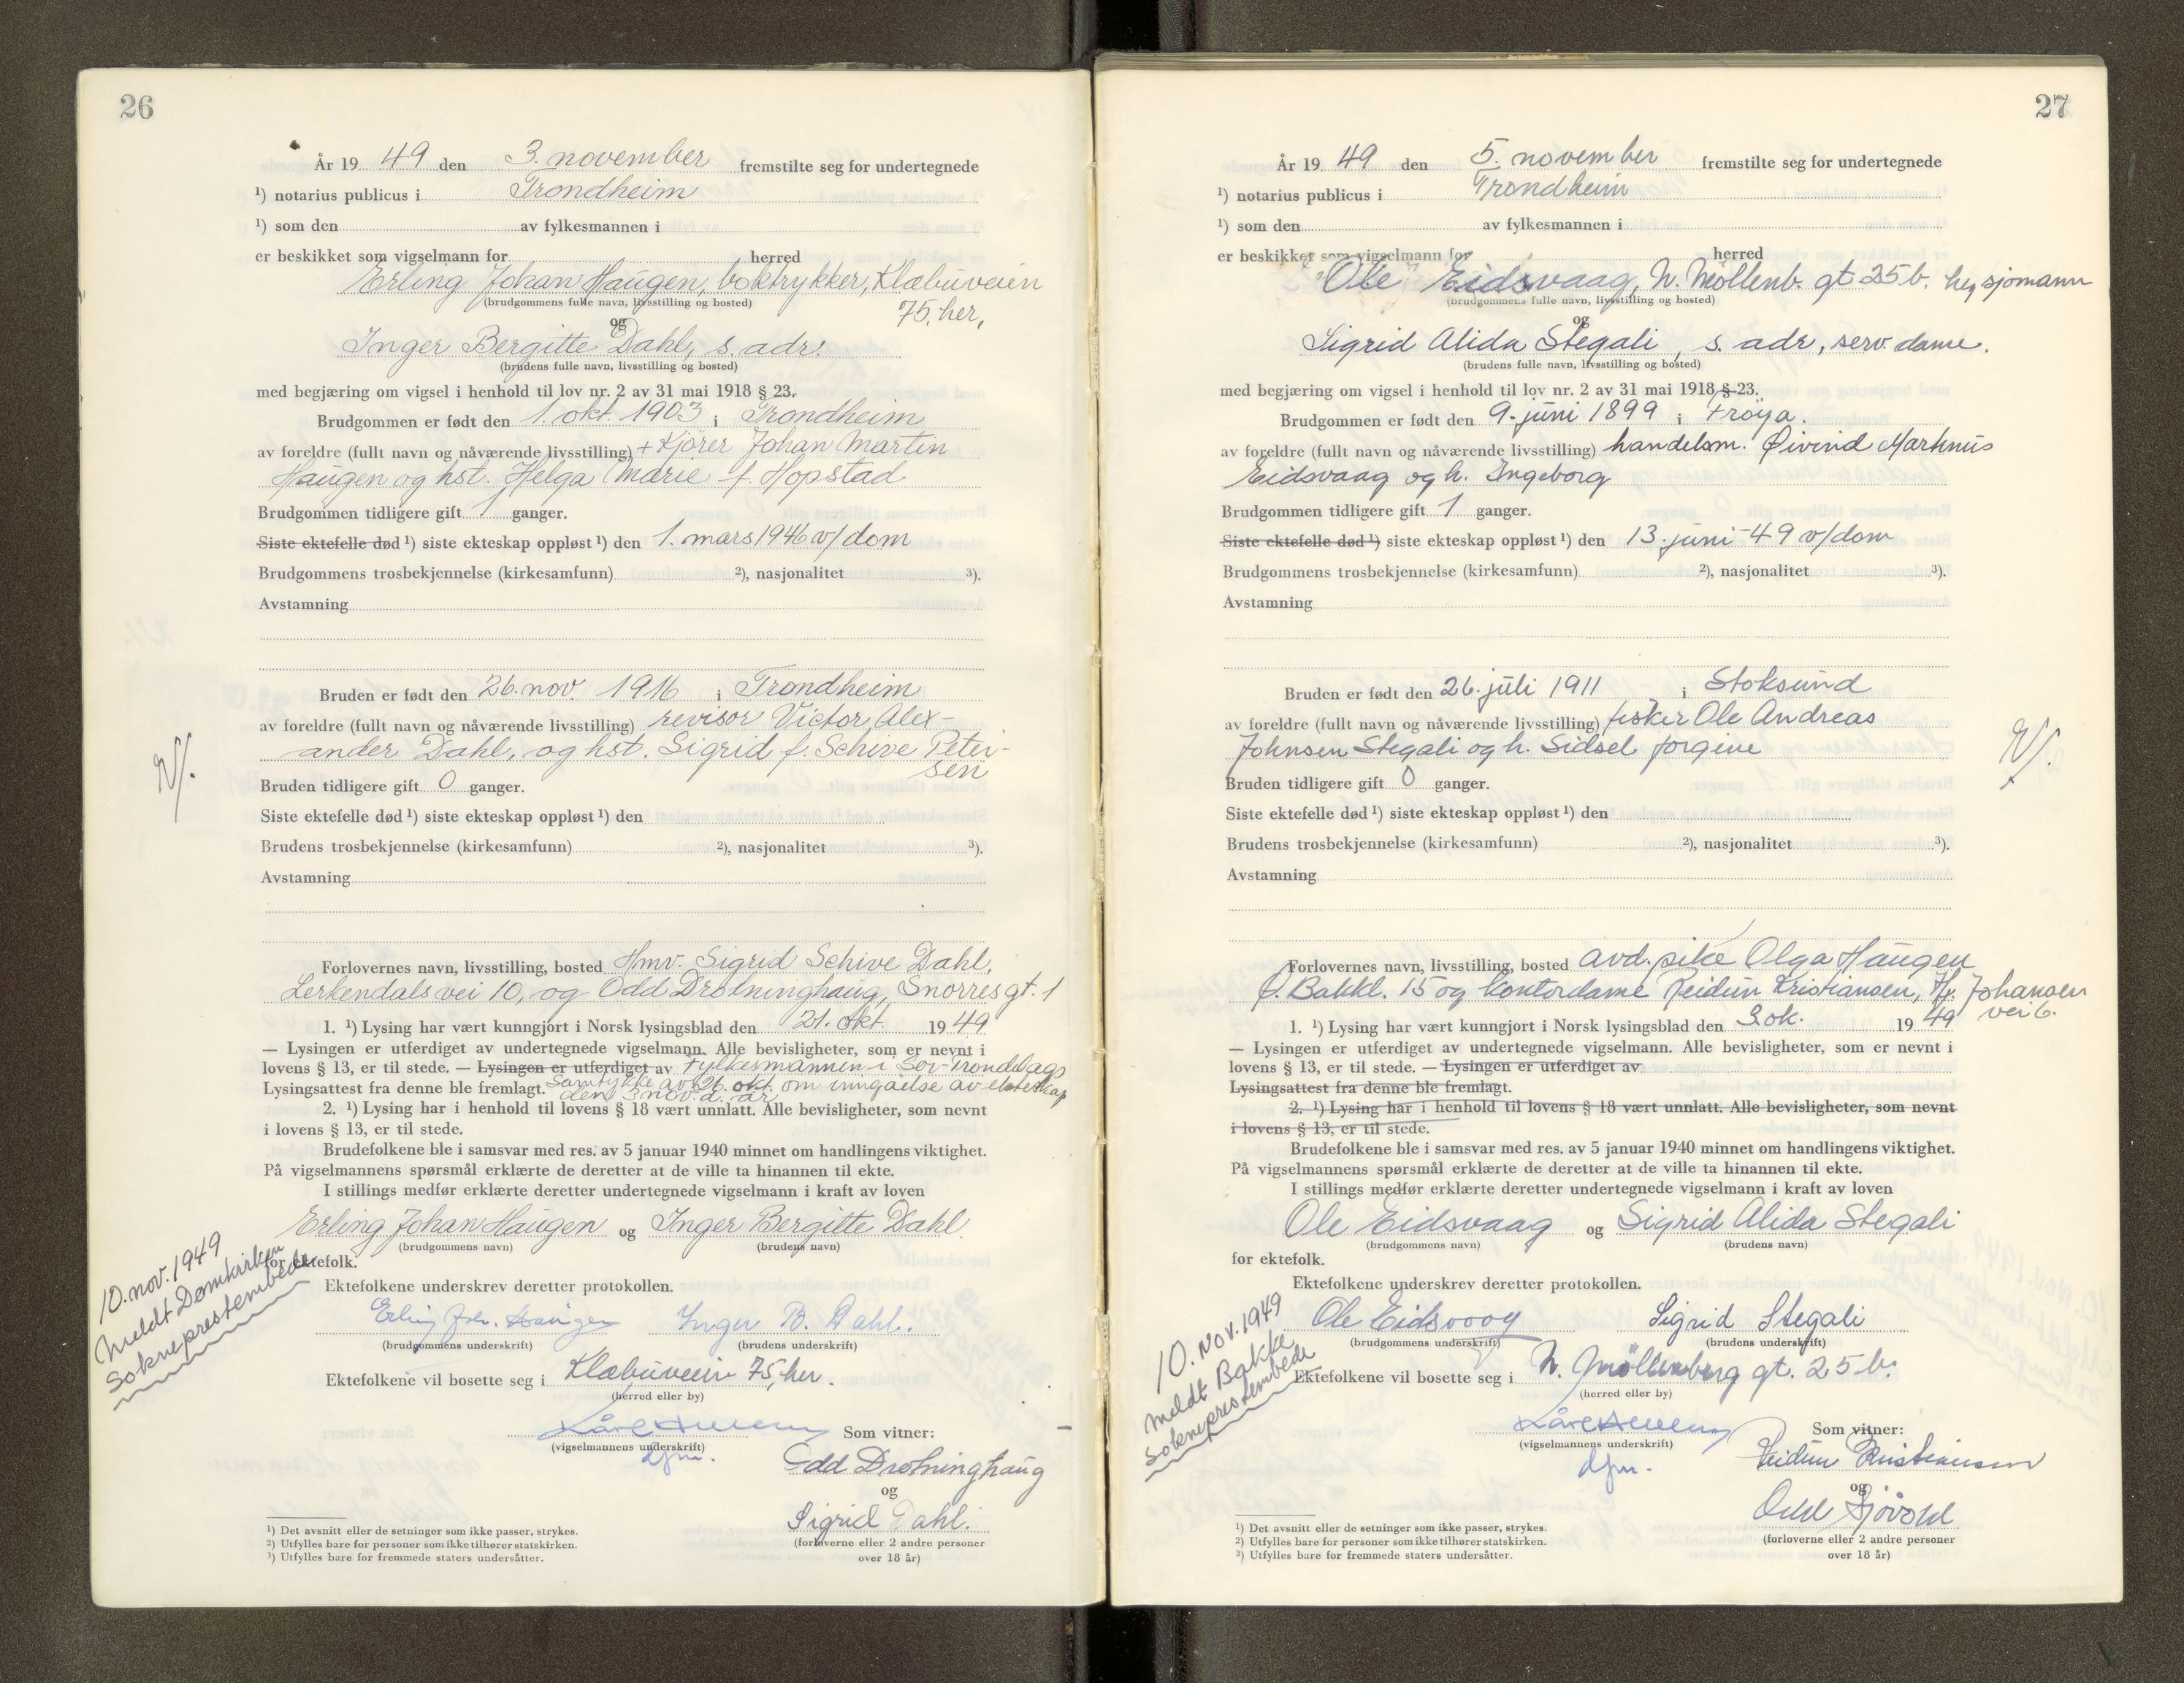 26
År 19 49 den 3. november fremstilte seg for undertegnede
¹) notarius publicus i Trondheim
¹) som den av fylkesmannen i
er beskikket som vigselmann for herred
Erling Johan Haugen, boktrykker, Klæbuveien
(brudgommens fulle navn, livsstilling og bosted)
75, her,
og
Inger Bergitte Dahl, s. adr.
(brudens fulle navn, livsstilling og bosted)
med begjæring om vigsel i henhold til lov nr. 2 av 31 mai 1918 § 23.
Brudgommen er født den 1. okt. 1903 i Trondheim
av foreldre (fullt navn og nåværende livsstilling) + Kjører Johan Martin
Haugen og hst. Helga Marie f. Hopstad
Brudgommen tidligere gift 1 ganger.
Siste ektefelle død ¹) siste ekteskap oppløst ¹) den 1. mars 1946 v/dom
Brudgommens trosbekjennelse (kirkesamfunn) ²), nasjonalitet ³).
Avstamning
Bruden er født den 26. nov. 1916 i Trondheim
av foreldre (fullt navn og nåværende livsstilling) revisor Victor Alex-
ander Dahl, og hst. Sigrid f. Schive Peter-
sen
Bruden tidligere gift 0 ganger.
Siste ektefelle død ¹) siste ekteskap oppløst ¹) den
Brudens trosbekjennelse (kirkesamfunn) ²), nasjonalitet ³).
Avstamning
Forlovernes navn, livsstilling, bosted Hmv. Sigrid Schive Dahl,
Lerkendals vei 10, og Odd Drotninghaug, Snorres gt. 1
1. ¹) Lysing har vært kunngjort i Norsk lysingsblad den 21. okt. 19 49
— Lysingen er utferdiget av undertegnede vigselmann. Alle bevisligheter, som er nevnt i
lovens § 13, er til stede. — Lysingen er utferdiget av Fylkesmannen i Sør-Trøndelags
Lysingsattest fra denne ble fremlagt. samtykke av 26. okt. om inngåelse av ekteskap
den 3 nov. d. år
2. ¹) Lysing har i henhold til lovens § 18 vært unnlatt. Alle bevisligheter, som nevnt
i lovens § 13, er til stede.
Brudefolkene ble i samsvar med res. av 5 januar 1940 minnet om handlingens viktighet.
På vigselmannens spørsmål erklærte de deretter at de ville ta hinannen til ekte.
I stillings medfør erklærte deretter undertegnede vigselmann i kraft av loven
Erling Johan Haugen og Inger Bergitte Dahl
(brudgommens navn) (brudens navn)
for ektefolk.
10. nov. 1949
Meldt Domkirken
Sokneprestembede
Ektefolkene underskrev deretter protokollen.
Erling Joh. Haugen Inger B. Dahl.
(brudgommens underskrift) (brudens underskrift)
Ektefolkene vil bosette seg i Klæbuveien 75, her.
(herred eller by)
(vigselmannens underskrift) Som vitner:
dfm.
Odd Drotninghaug
og
Sigrid Dahl.
(forloverne eller 2 andre personer
over 18 år)
¹) Det avsnitt eller de setninger som ikke passer, strykes.
²) Utfylles bare for personer som ikke tilhører statskirken.
³) Utfylles bare for fremmede staters undersåtter.
27
År 19 49 den 5. november fremstilte seg for undertegnede
¹) notarius publicus i Trondheim
¹) som den av fylkesmannen i
er beskikket som vigselmann for herred
Ole Eidsvaag, N. Möllenb. gt 25 b. her, sjømann
(brudgommens fulle navn, livsstilling og bosted)
og
Sigrid Alida Stegali, s. adr, serv. dame.
(brudens fulle navn, livsstilling og bosted)
med begjæring om vigsel i henhold til lov nr. 2 av 31 mai 1918 § 23.
Brudgommen er født den 9. juni 1899 i Frøya.
av foreldre (fullt navn og nåværende livsstilling) handelsm. Øivind Martinus
Eidsvaag og h. Ingeborg
Brudgommen tidligere gift 1 ganger.
Siste ektefelle død ¹) siste ekteskap oppløst ¹) den 13. juni - 49 v/dom
Brudgommens trosbekjennelse (kirkesamfunn) ²), nasjonalitet ³).
Avstamning
Bruden er født den 26. juli 1911 i Stoksund
av foreldre (fullt navn og nåværende livsstilling) fisker Ole Andreas
Johnsen Stegali og h. Sidsel Jorgine
Bruden tidligere gift 0 ganger.
Siste ektefelle død ¹) siste ekteskap oppløst ¹) den
Brudens trosbekjennelse (kirkesamfunn) ²), nasjonalitet ³).
Avstamning
Forlovernes navn, livsstilling, bosted avd. pike Olga Haugen
Ø. Bakkl. 15 og kontordame Reidun Kristiansen, Hj. Johansen
vei 6.
1. ¹) Lysing har vært kunngjort i Norsk lysingsblad den 3. ok. 19 49
— Lysingen er utferdiget av undertegnede vigselmann. Alle bevisligheter, som er nevnt i
lovens § 13, er til stede. — Lysingen er utferdiget av
Lysingsattest fra denne ble fremlagt.
2. ¹) Lysing har i henhold til lovens § 18 vært unnlatt. Alle bevisligheter, som nevnt
i lovens § 13, er til stede.
Brudefolkene ble i samsvar med res. av 5 januar 1940 minnet om handlingens viktighet.
På vigselmannens spørsmål erklærte de deretter at de ville ta hinannen til ekte.
I stillings medfør erklærte deretter undertegnede vigselmann i kraft av loven
Ole Eidsvaag og Sigrid Alida Stegali
(brudgommens navn) (brudens navn)
for ektefolk.
Ektefolkene underskrev deretter protokollen.
10. Nov. 1949
Meldt Bakke
Sokneprestembede
Ole Eidsvoog Sigrid Stegali
(brudgommens underskrift) (brudens underskrift)
Ektefolkene vil bosette seg i N. Möllenberg gt. 25 b.
(herred eller by)
(vigselmannens underskrift) Som vitner:
dfm.
Reidun Kristiansen
og
Odd Sjøvold
(forloverne eller 2 andre personer
over 18 år)
¹) Det avsnitt eller de setninger som ikke passer, strykes.
²) Utfylles bare for personer som ikke tilhører statskirken.
³) Utfylles bare for fremmede staters undersåtter.